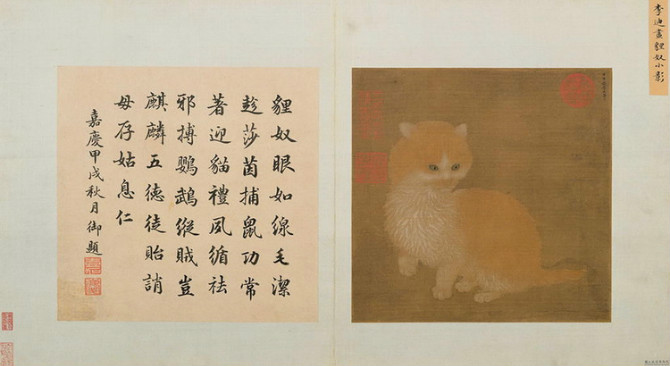 李迪畫貍奴小影
貍奴眼如線毛潔
趁莎茵捕鼠功常
著迎貓禮夙循祛
邪搏鸚鵡縱賊豈
麒麟五德徒貽誚
毋存姑息仁
嘉慶甲戌秋月御題